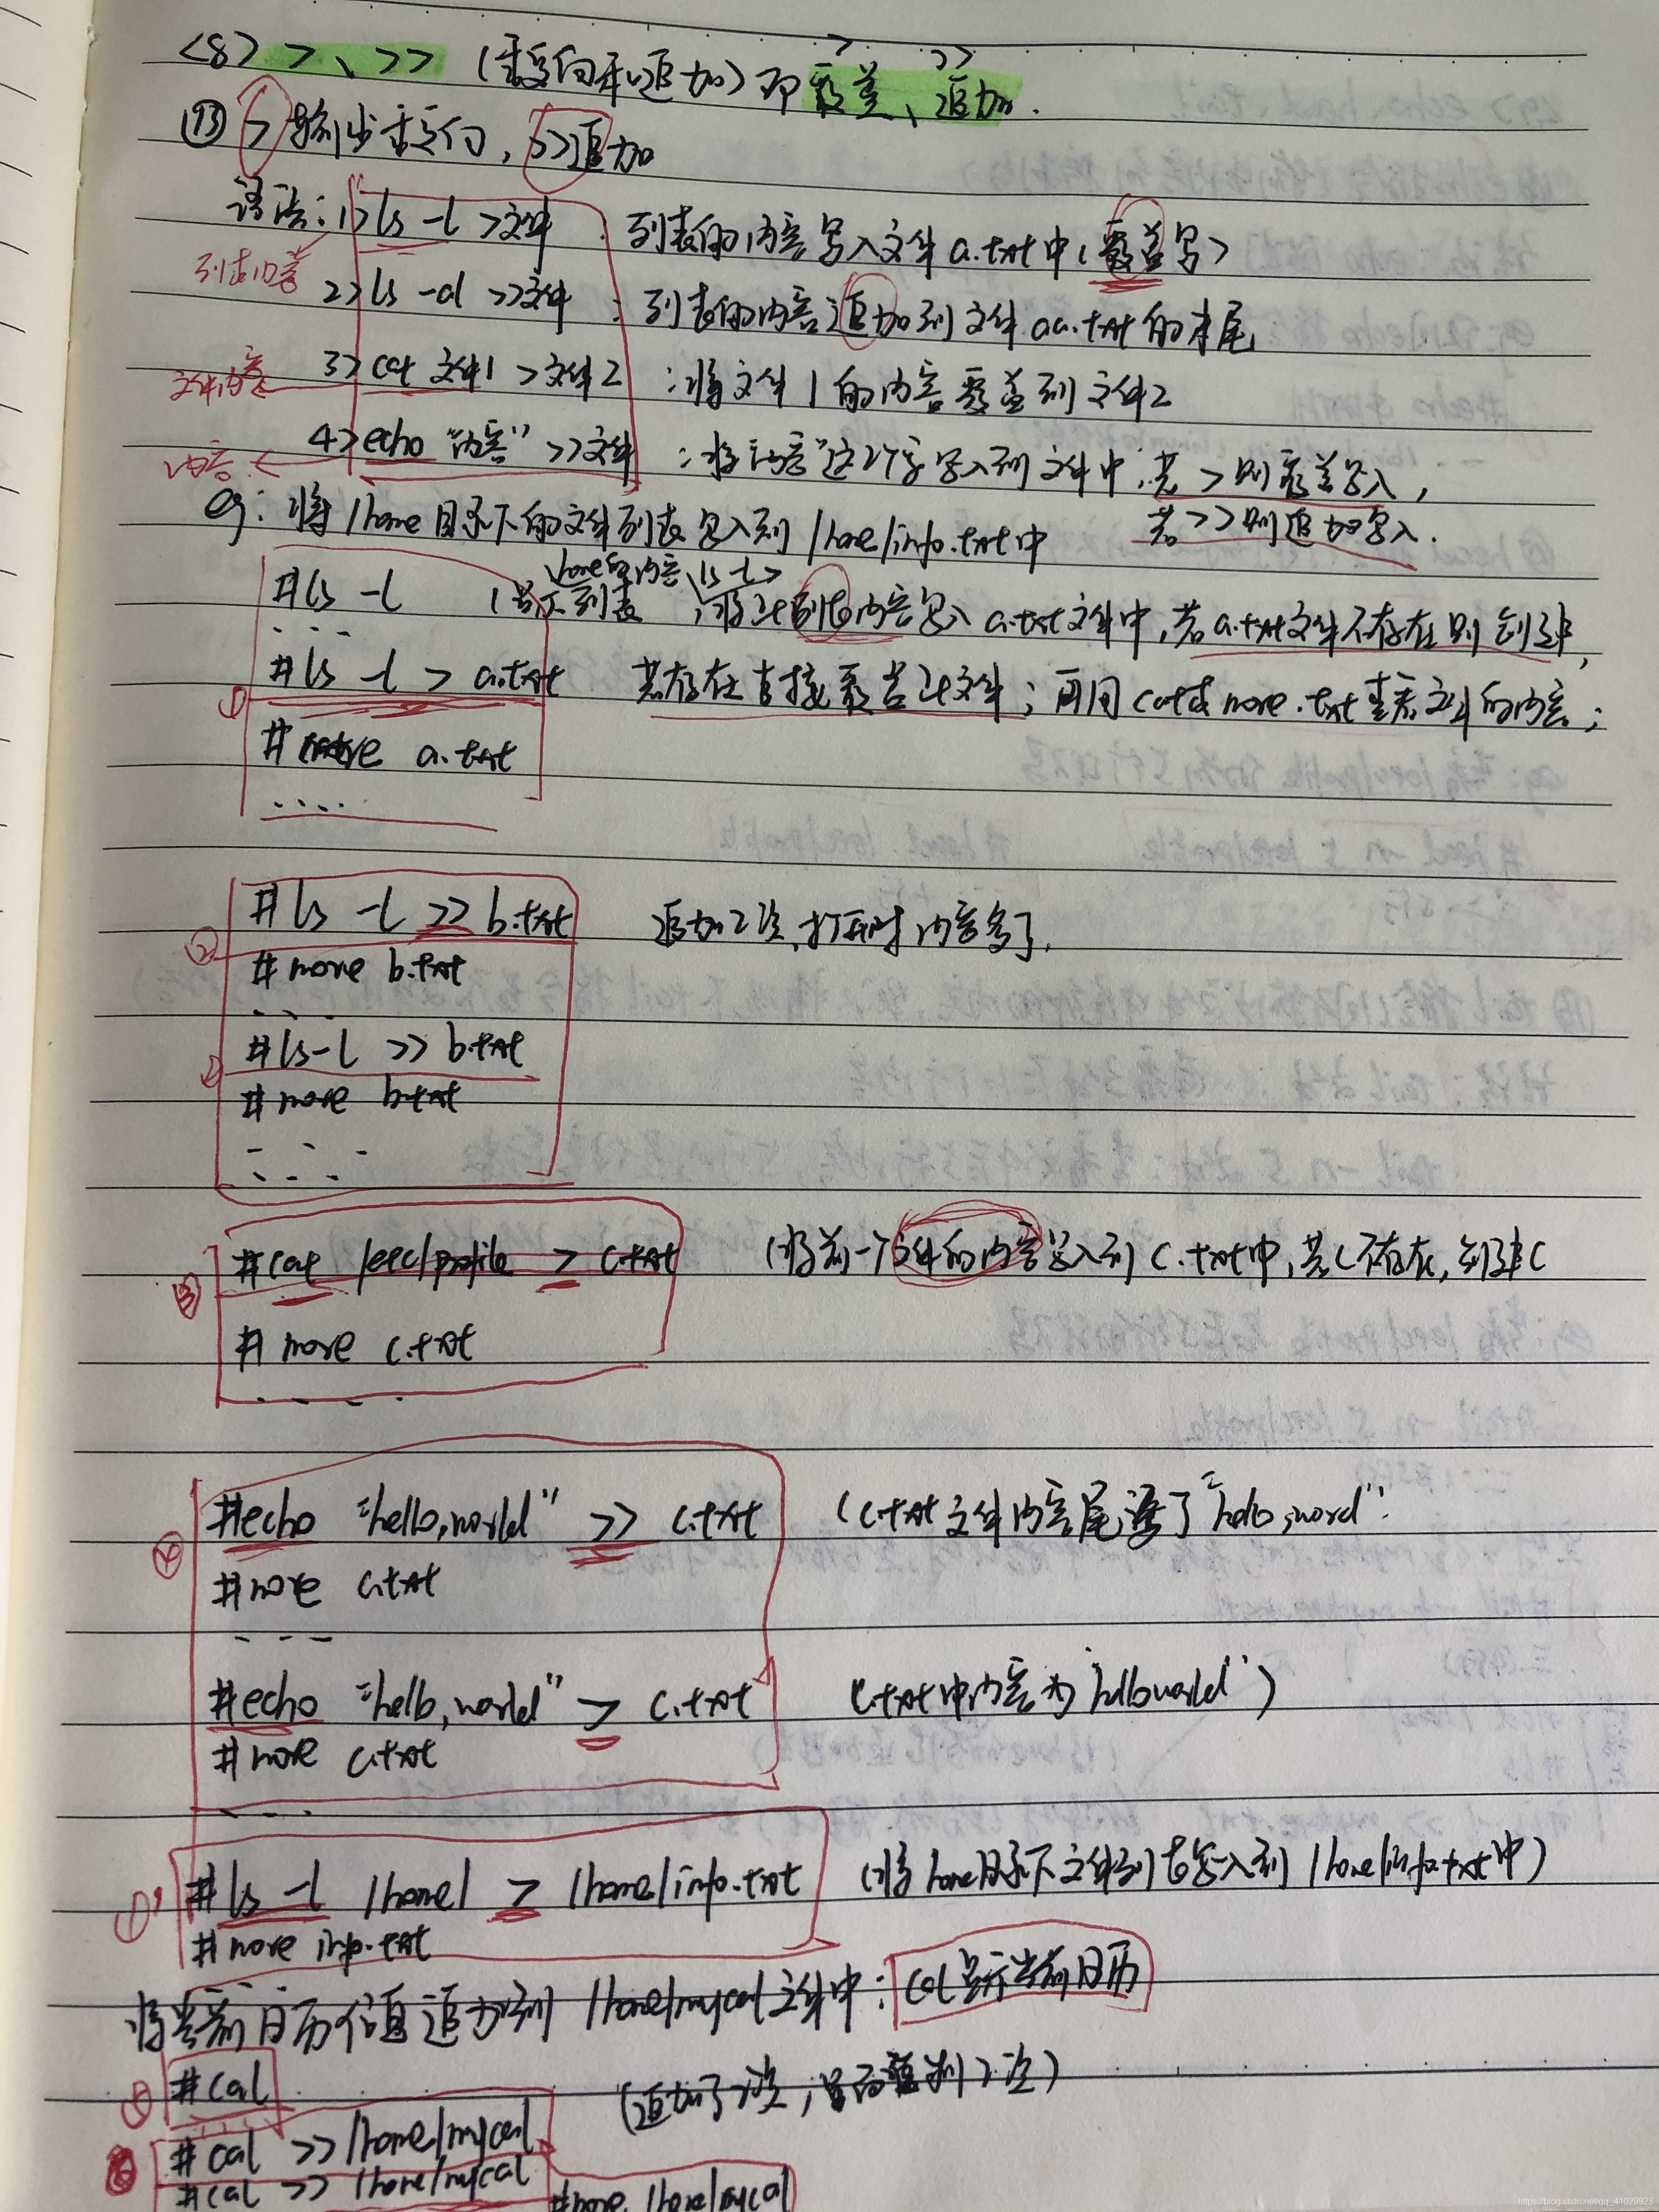 <8> >、>> (重定向和追加) 即覆盖、追加.
> >>
⑬ >输出重定向, >>追加
语法: 1> ls -l >文件 : 列表的内容写入文件a.txt中(覆盖写)
列表内容
2> ls -al >>文件 : 列表的内容追加到文件aa.txt的末尾
文件内容
3> cat 文件1 >文件2 :将文件1的内容覆盖到文件2
内容
4> echo "内容" >>文件 :将"内容"这2个字写入到文件中,若 > 则覆盖写入,
若>>则追加写入.
eg: 将/home目录下的文件列表写入到 /home/info.txt中
home的内容 ls -l
#ls -l (显示列表 ,将此列表内容写入a.txt文件中,若a.txt文件不存在则创建,
. . .
① #ls -l > a.txt 若存在直接覆盖此文件; 再用cat或more .txt查看文件的内容;
#more a.txt
. . . .
② #ls -l >> b.txt 追加2次,打开时内容多了.
#more b.txt
. . . .
#ls -l >> b.txt
#more b.txt
. . . .
③ #cat /etc/profile > c.txt (将前一个文件的内容写入到c.txt中,若c不存在,创建c
#more c.txt
. . . .
④ #echo "hello,world" >> c.txt (c.txt文件内容尾添了"hello,word".
#more c.txt
- - -
#echo "hello,world" > c.txt (c.txt中内容为"helloworld")
#more c.txt
. . . .
①' #ls -l /home/ > /home/info.txt (将home目录下文件列表写入到/home/info.txt中)
#more info.txt
将当前日历信息追加到 /home/mycal文件中: cal显示当前日历
⑤ #cal (追加了2次, 2次)
#cal >> /home/mycal
⑥ #cal >> /home/mycal
#more /home/mycal
https://blog.csdn.net/qq_41029923